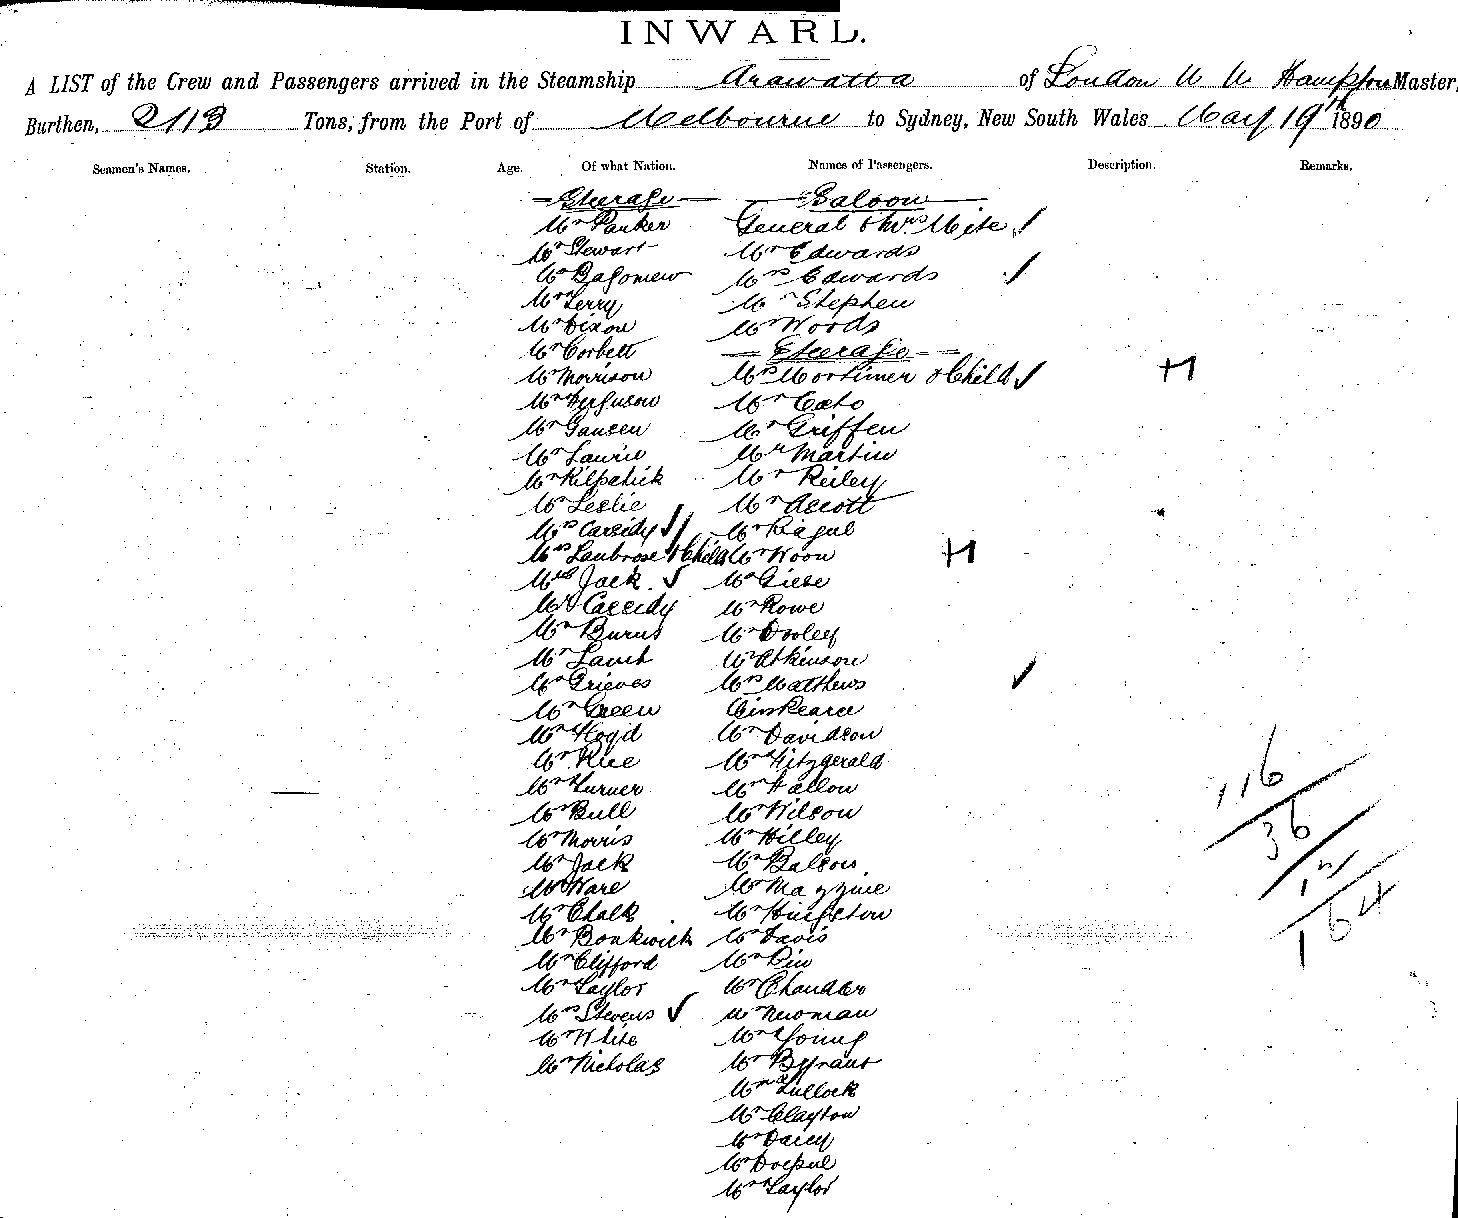 INWARD.
A LIST of the Crew and Passengers arrived in the Steamship Arawatta of London Hampton Master,
Burthen, 2113 Tons, from the Port of Melbourne to Sydney, New South Wales May 19th 1890
Seamen's Names. Station. Age. Of what Nation. Names of Passengers. Description. Remarks.
Steerage
Mr Parker
Mr Stewart
Mr
Mr Terry
Mr Dixon
Mr Corbett
Mr Morrison
Mr Ferguson
Mr Jansen
Mr Laurie
Mr Kilpatick
Mr Leslie
Mrs Cassidy
Mrs & Child
Jack
Mr Cassidy
Mr Burns
Mr Lamb
Mr Grieves
Mr Green
Mr
Mr Rice
Mr Turner
Mr Bull
Mr Morris
Mr Jack
Mr Ware
Mr Chalk
Mr Bonkwick
Mr Clifford
Mr Taylor
Mrs Stevens
Mr White
Mr Nicholas
Saloon
General & Mrs Mite
Mr Edwards
Mrs Edwards
Mr Stephen
Mr Woods
Steerage
Mrs Mortimer & Child
H
Mr Cato
Mr Griffen
Mr Martin
Mr Reiley
Mr Ascott
Mr
Mr Woon
H
Mr Giese
Mr Rowe
Mr Dooley
Mr Atkinson
Mrs Matthews
Miss Pearce
Mr Davidson
Mr Fitzgerald
Mr Fallon
Mr Wilson
Mr Hilley
Mr
Mr
Mr Hingston
Mr Davis
Mr
Mr Chandler
Mr Newman
Mr Young
Mr Byrant
Mr Tullock
Mr Clayton
Mr Darcy
Mr
Mr Taylor
116
36
12
164